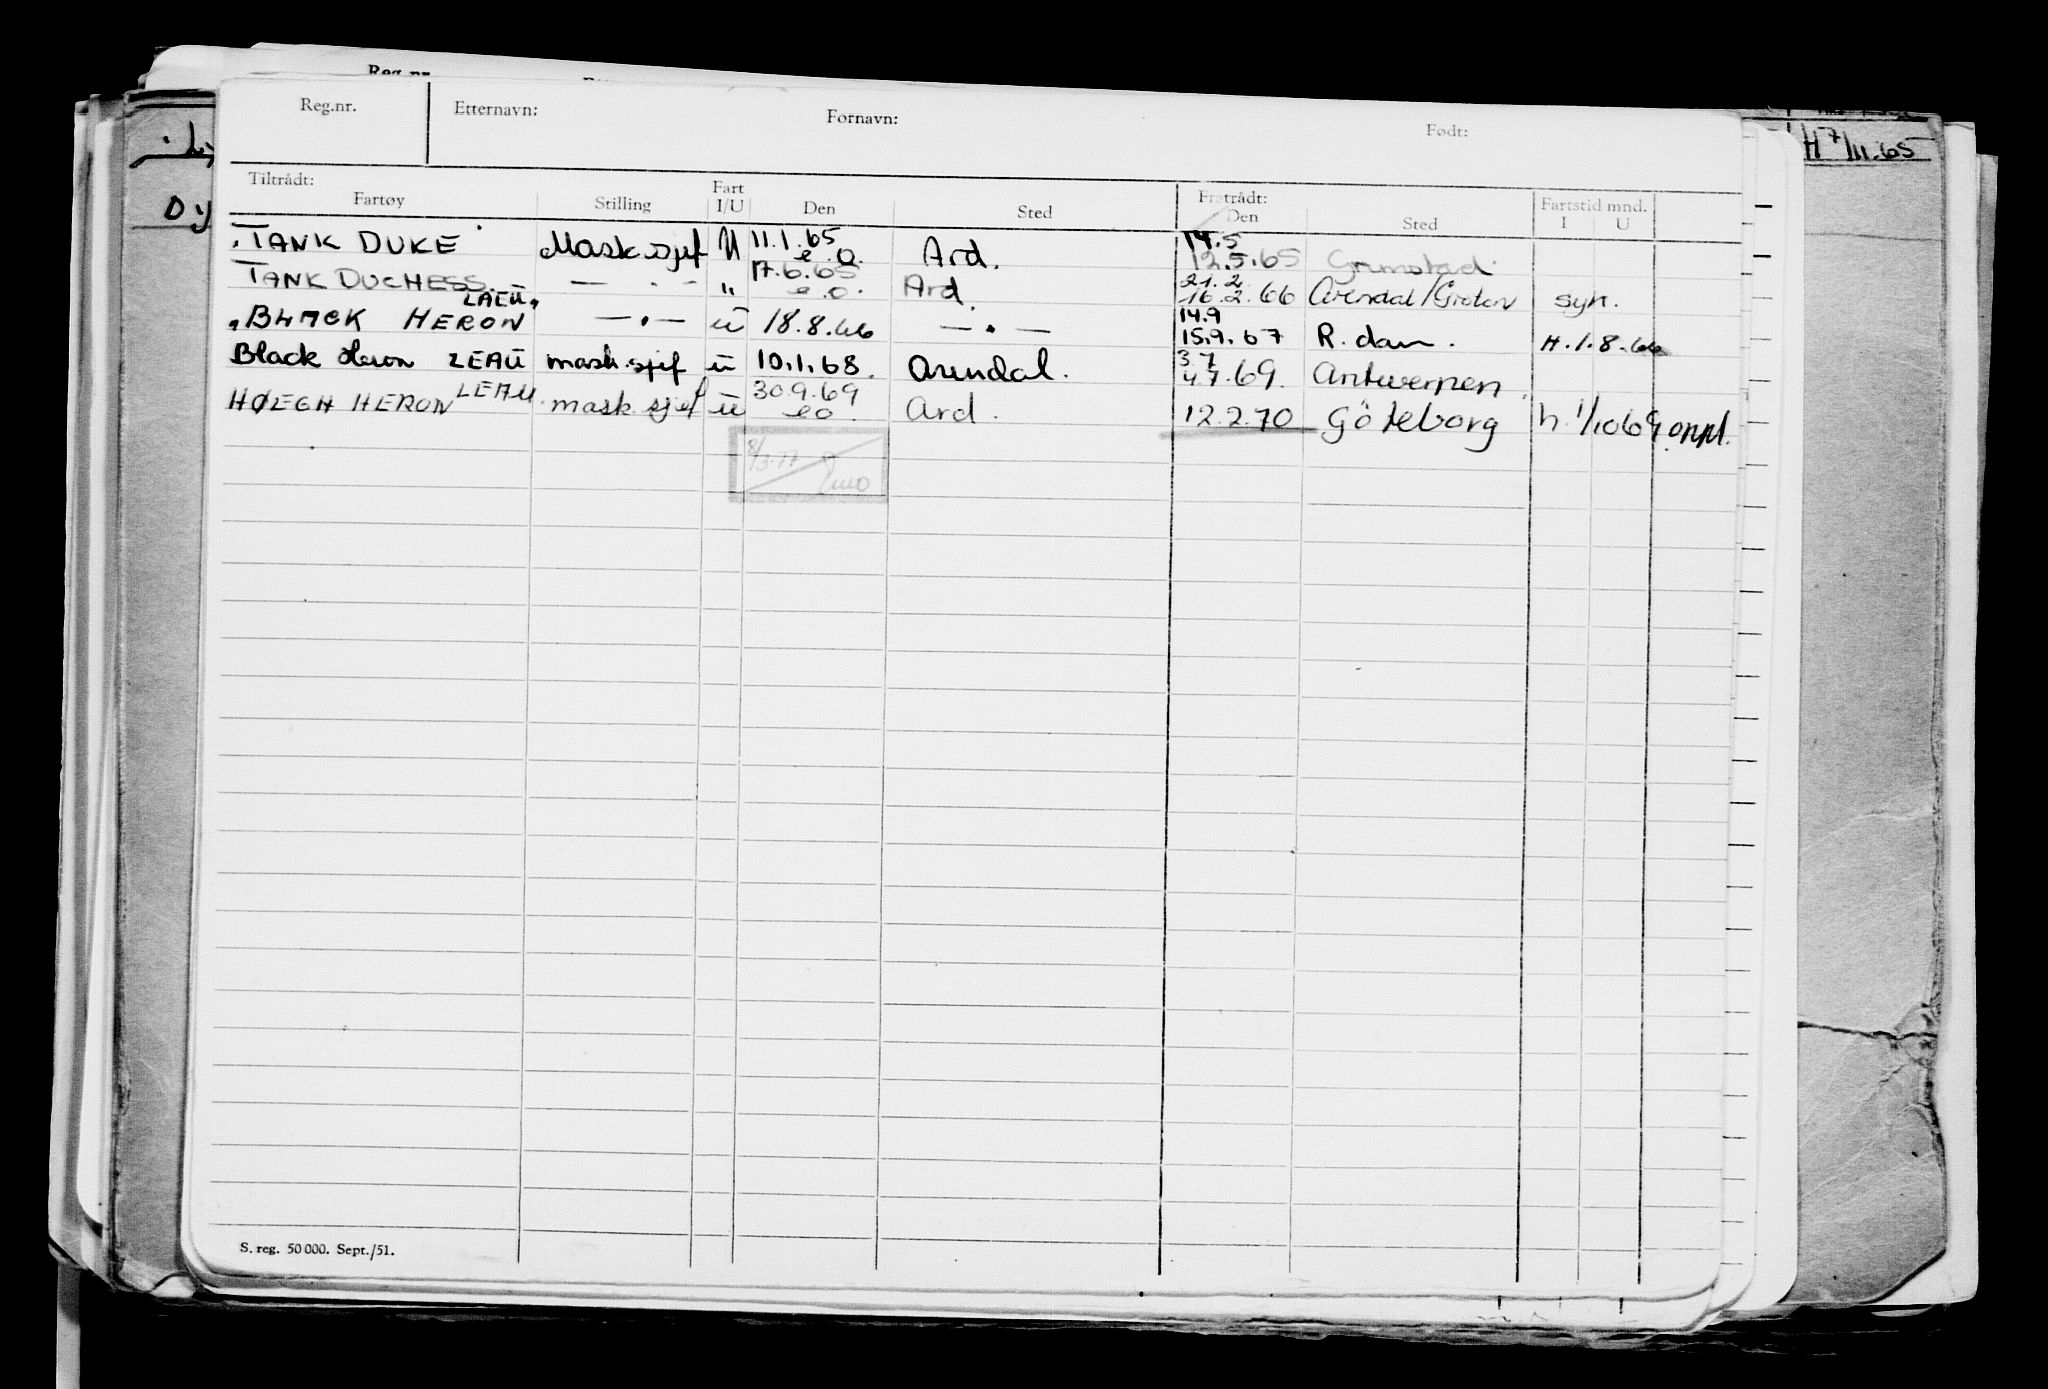 Reg.nr.
Reg.nr. Etternavn: Fornavn: Født:
H 7/11.65
Tiltrådt: Fratrådt:
Fartøy Stilling Fart I/U Den Sted Den Sted Fartstid mnd. I U
TANK DUKE Mask.sjef U 11.1.65 e.o. Ard. 14.5 12.5.65 Grimstad
TANK DUCHESS — . — " 17.6.65 e.o. Ard. 21.2 16.2.66 Arendal/Groton syk.
"BLACK HERON LAEU" — . — u 18.8.66 — . — 14.9 15.9.67 R.dam. H.1.8.66
Black Heron LEAU mask.sjef u 10.1.68. Arendal. 3.7 4.7.69. Antwerpen.
HØEGH HERON LEAU mask.sjef u 30.9.69 eo. Ard. 12.2.70 Göteborg h 1/1069 oppl.
8/3.77
S. reg. 50 000. Sept./51.